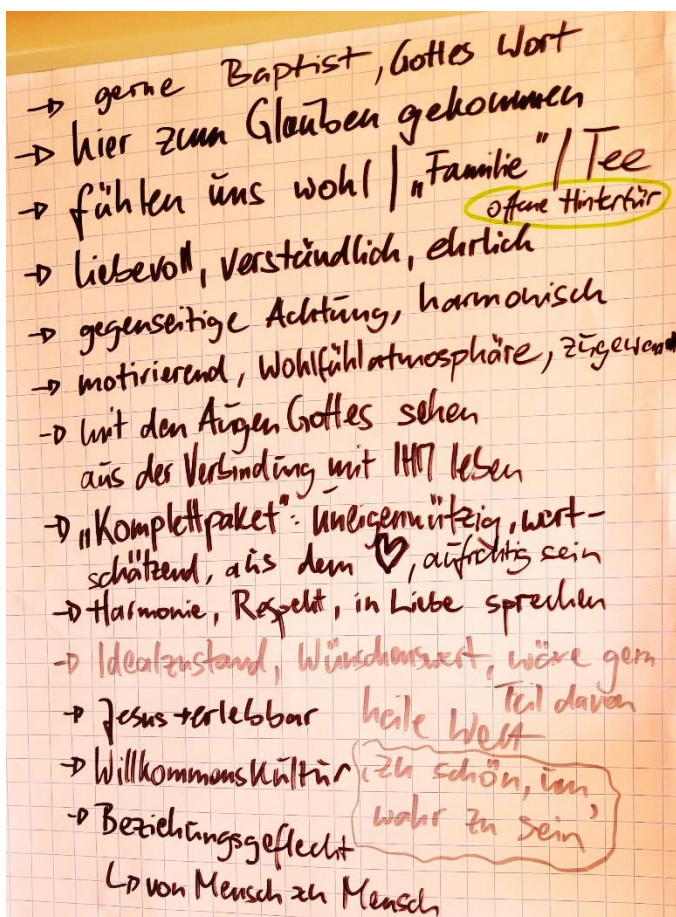 → gerne Baptist, Gottes Wort
→ hier zum Glauben gekommen
→ fühlen uns wohl | „Familie" / Tee
offene Hintertür
→ liebevoll, verständlich, ehrlich
→ gegenseitige Achtung, harmonisch
→ motivierend, Wohlfühlatmosphäre, zugewandt
→ mit den Augen Gottes sehen
aus der Verbindung mit IHM leben
→ „Komplettpaket": uneigennützig, wert-
schätzend, aus dem ♡, aufrichtig sein
→ Harmonie, Respekt, in Liebe sprechen
→ Idealzustand, Wünschenswert, wäre gern
Teil davon
→ Jesus → erlebbar
heile Welt
→ Willkommenskultur
'zu schön, um
wahr zu sein'
→ Beziehungsgeflecht
↳ von Mensch zu Mensch